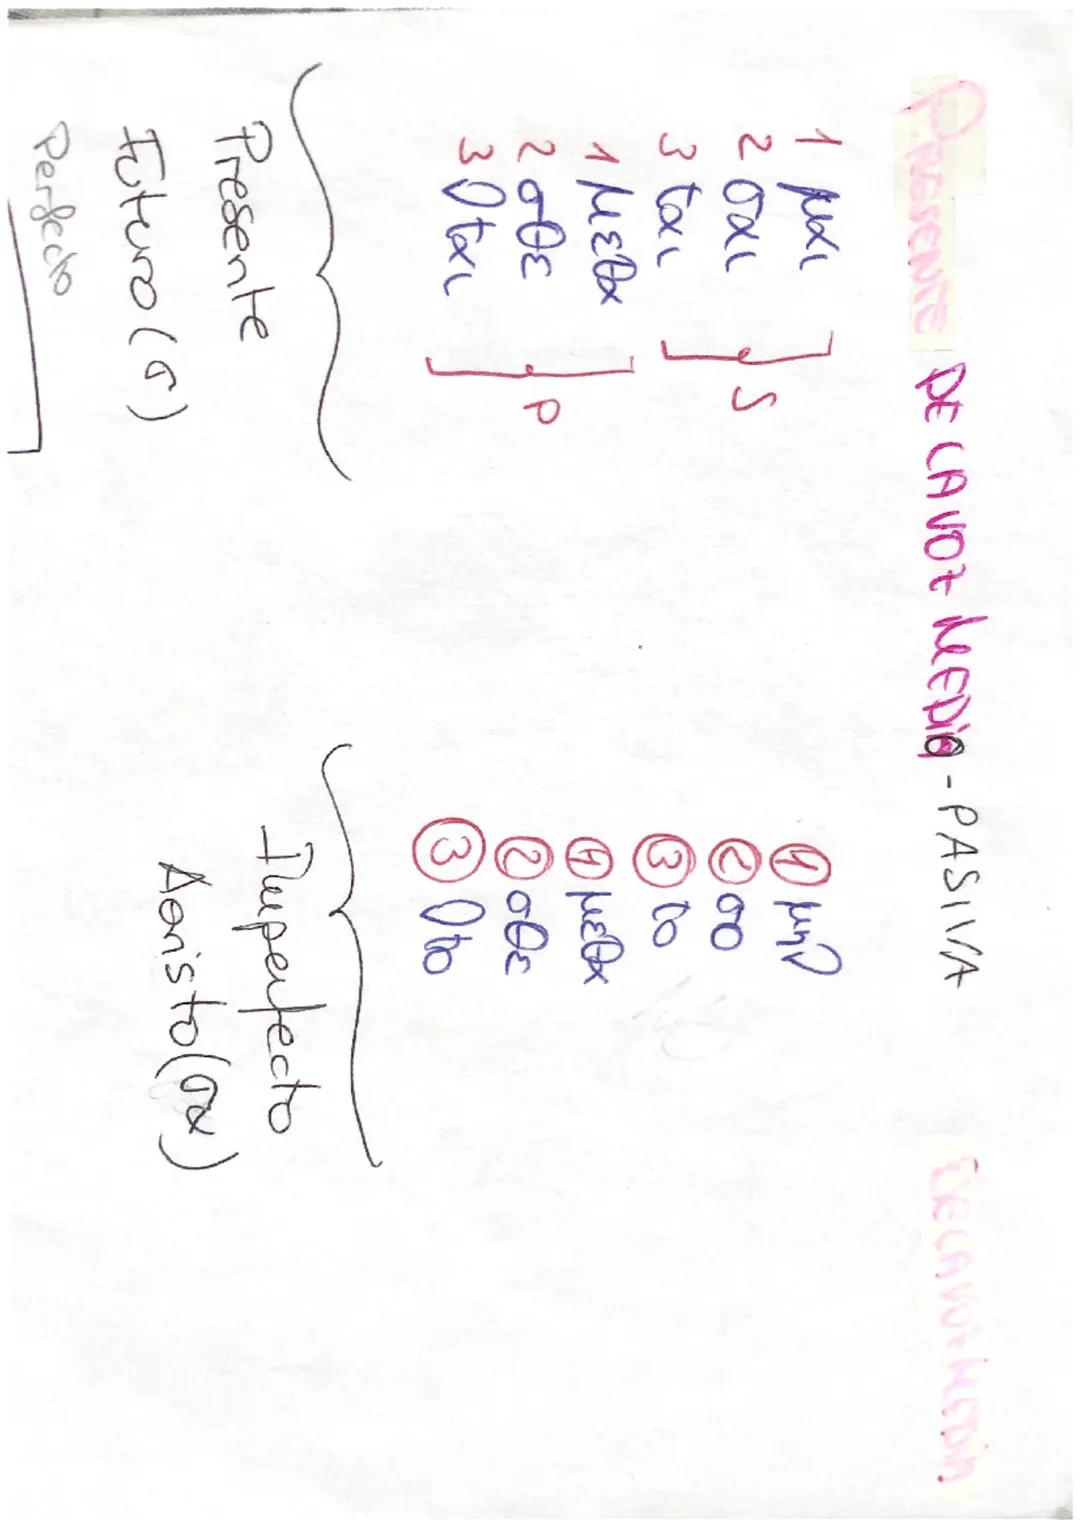 PRESENTE DE LA VOZ MEDIO-PASIVA
DE LA VOZ MEDIA.
1 μαι
2 σαι
3 ται
S
1 μεθα
2 σθε
3 νται
P
Presente
Futuro (σ)
Perfecto
1 μην
2 σο
3 το
1 μεθα
2 σθε
3 ντο
Imperfecto
Aoristo (σα)